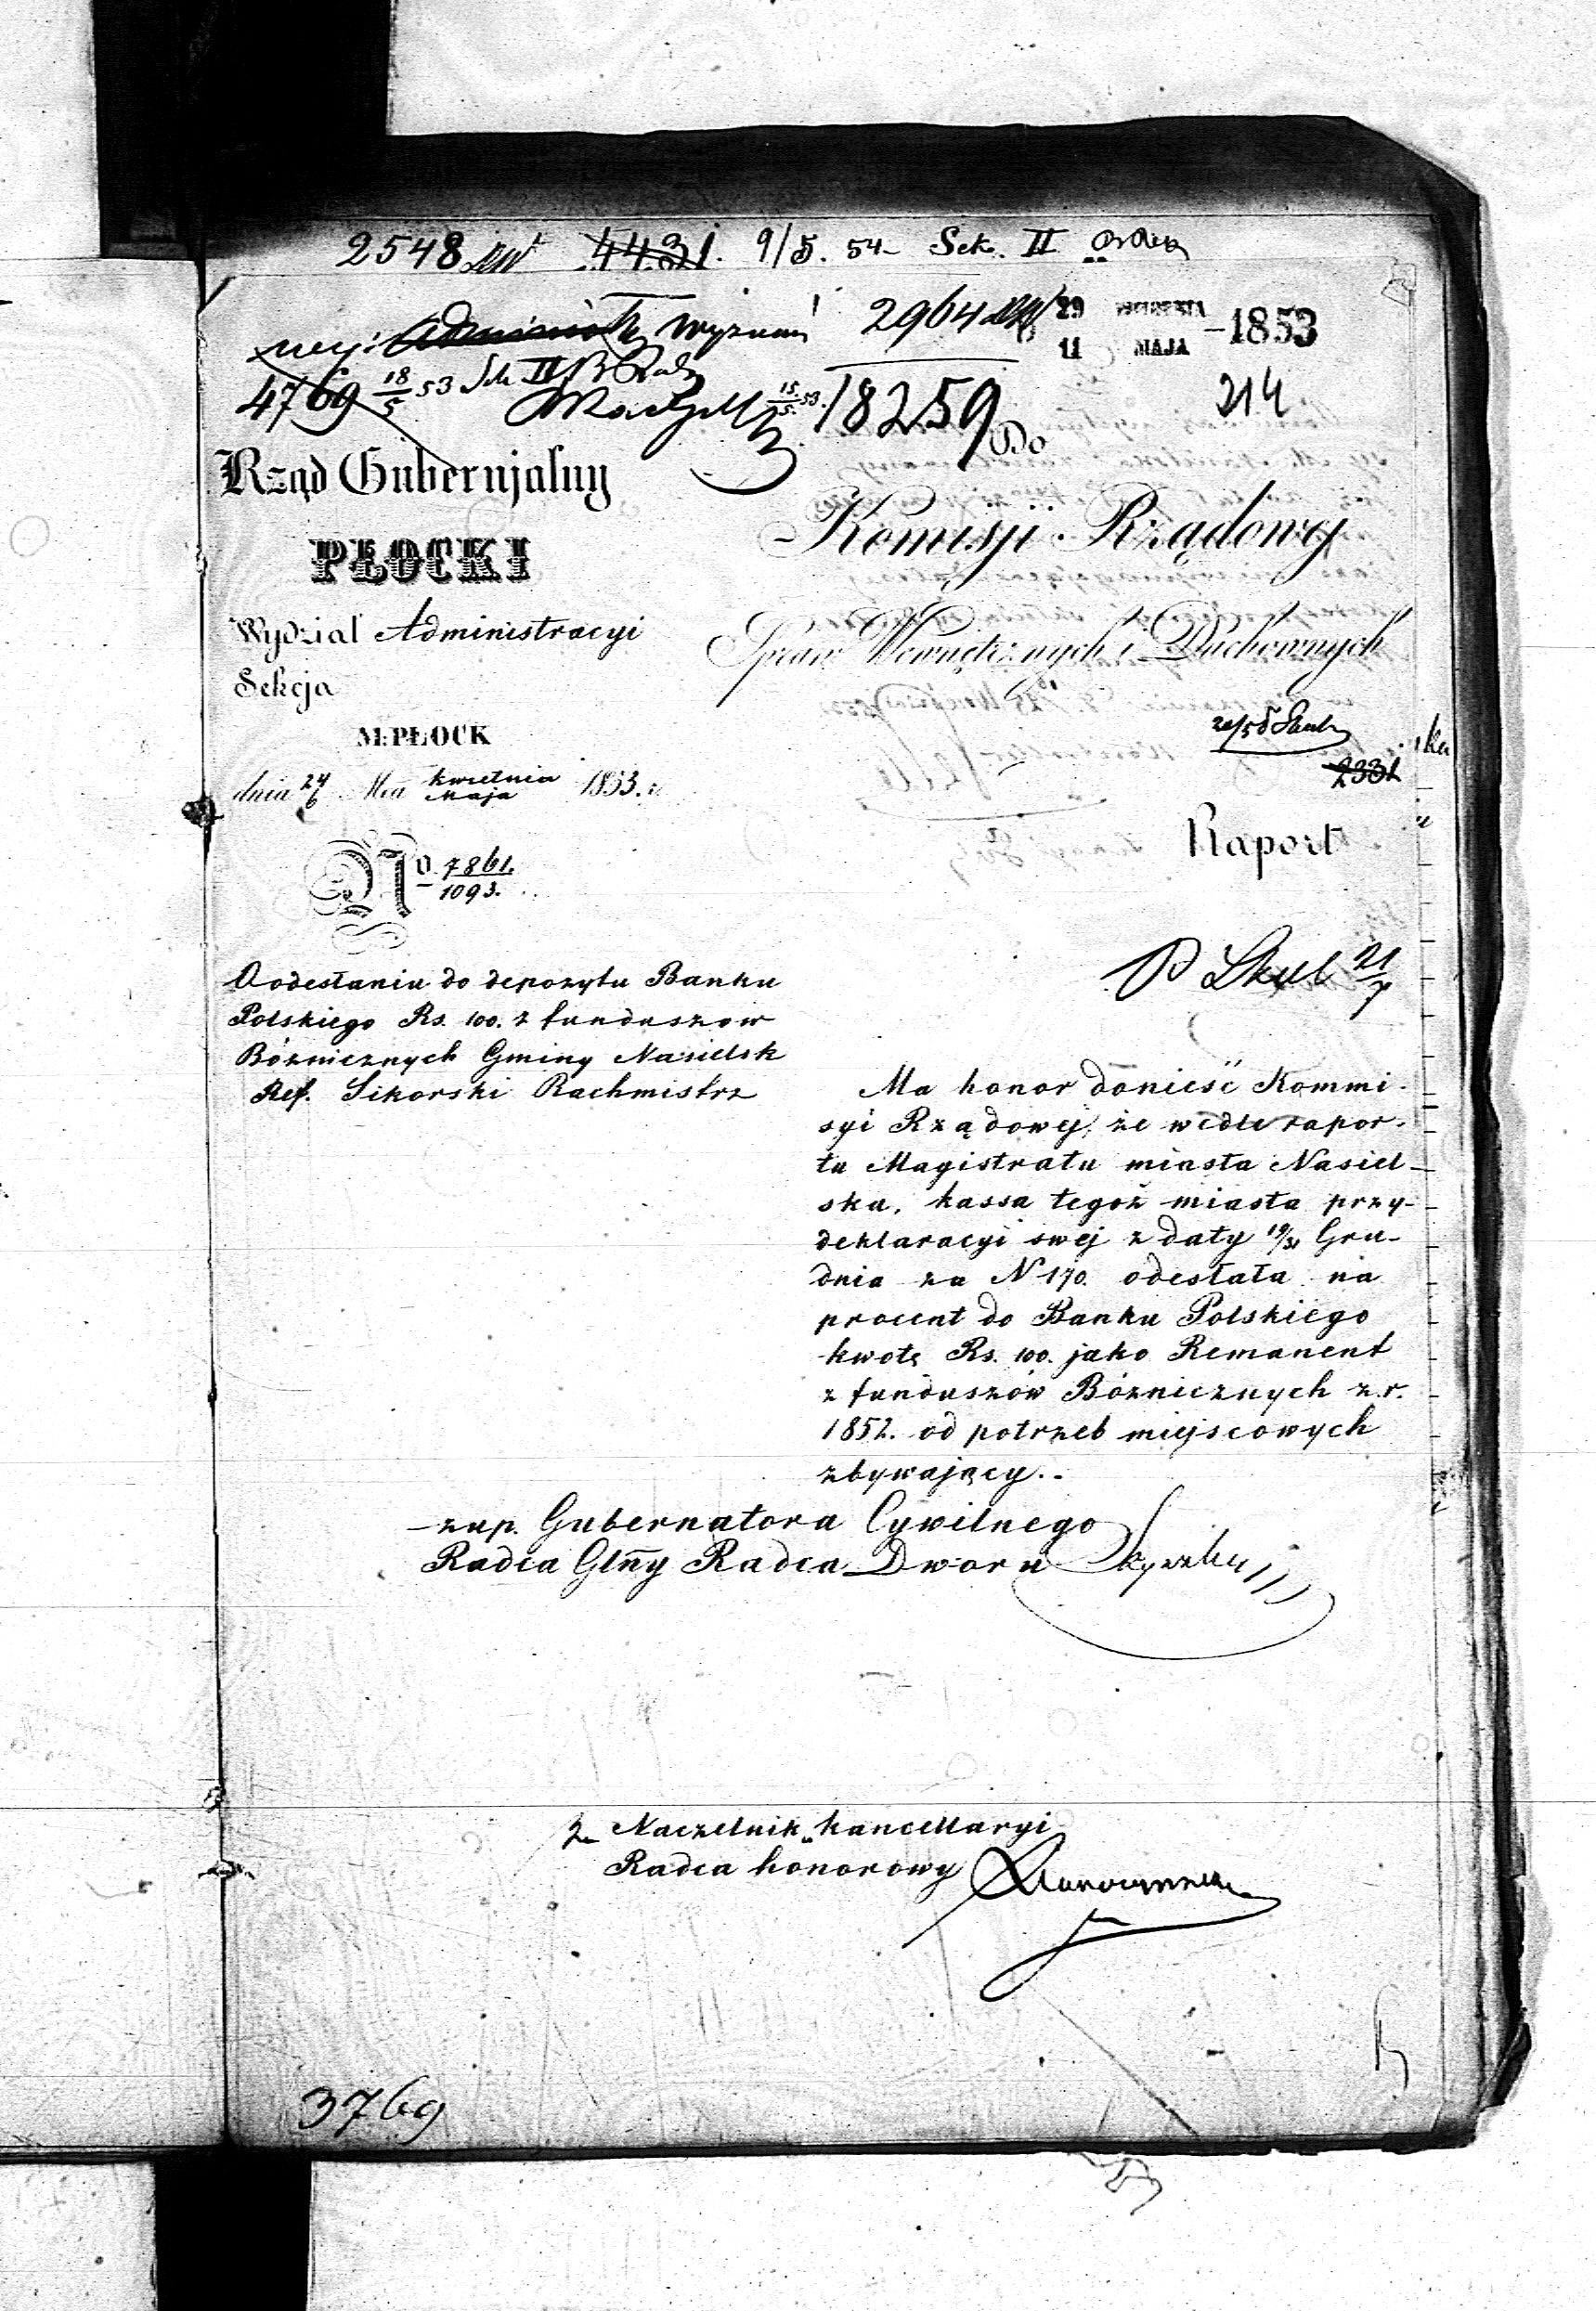 2548 4431. 9/5. 54 Sek. II
wyznań 2964 29 KWIETNIA
11 MAJA – 1853
4769 18/5 53 Sek. II 15/5 53. 18259 214
Do
Rząd Gubernjalny
PŁOCKI
Wydział Administracyi
Sekcja
M. PŁOCK
dnia 24/6 Mca kwietnia/Maja 1853. r.
No. 7861./1093.
Komisji Rządowej
Spraw Wewnętrznych i Duchownych
2331
Raport
O odesłaniu do depozytu Banku
Polskiego Rs. 100. z funduszow
Bóżnicznych Gminy Nasielsk
Ref. Sikorski Rachmistrz
21/7
Ma honor donieść Kommi-
syi Rządowej, że wedle rapor-
tu Magistratu miasta Nasiel-
ska, kassa tegoż miasta przy
deklaracyi swej z daty 19/31 Gru-
dnia za N 170. odesłała na
procent do Banku Polskiego
kwotę Rs. 100. jako Remanent
z funduszów Bóżnicznych z r.
1852. od potrzeb miejscowych
zbywający.
zap. Gubernatora Cywilnego
Radca Glny Radca Dworu
z Naczelnik kancellaryi
Radca honorowy
3769